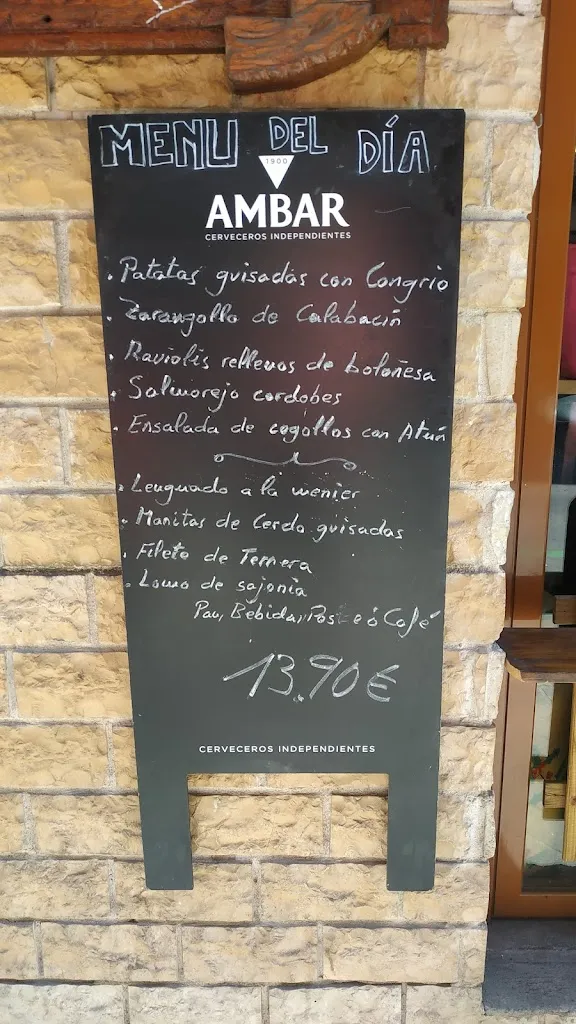 MENU DEL DÍA
1900
AMBAR
CERVECEROS INDEPENDIENTES
. Patatas guisadas con Congrio
. Zarangollo de Calabacín
. Raviolis rellenos de boloñesa
. Salmorejo cordobes
. Ensalada de cogollos con Atún
. Lenguado a la menier
. Manitas de Cerdo guisadas
. Fileto de Ternera
. Lomo de sajonia
Pan, Bebida, Postre ó Café
13.90€
CERVECEROS INDEPENDIENTES